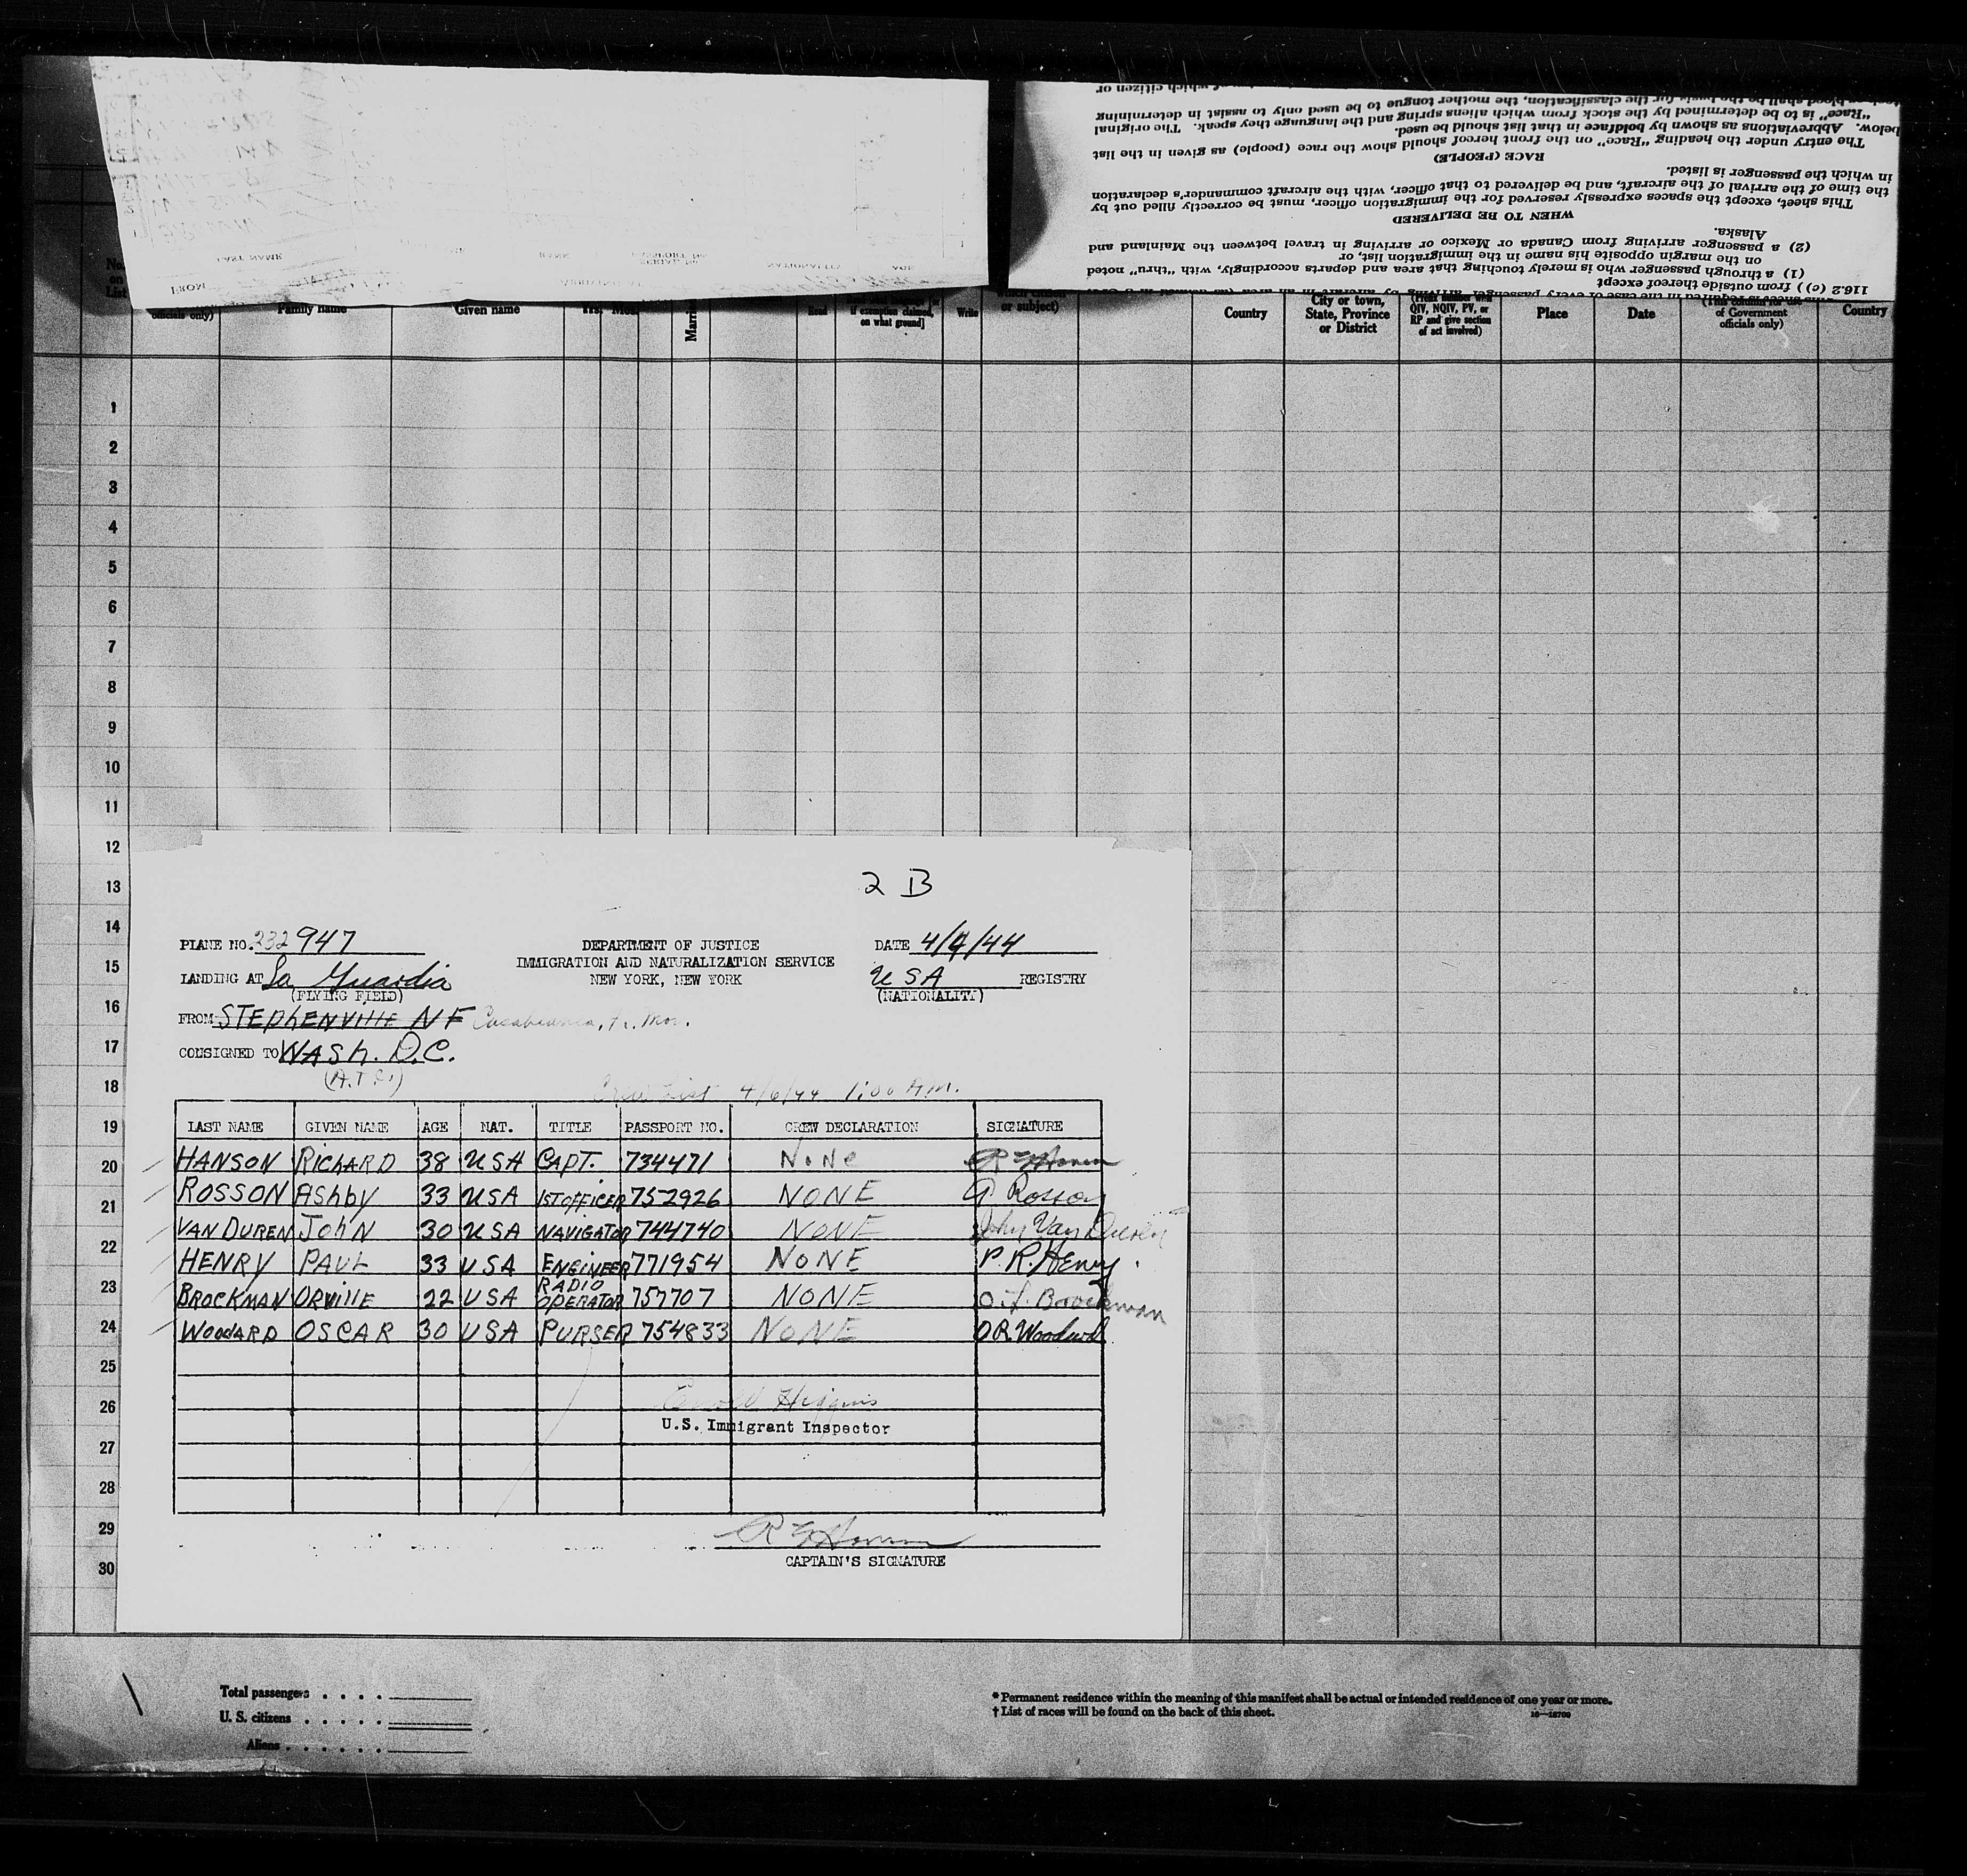 116.2 (c) ) from outside thereof except
(1) a through passenger who is merely touching that area and departs accordingly, with "thru" noted
on the margin opposite his name in the immigration list, or
(2) a passenger arriving from Canada or Mexico or arriving in travel between the Mainland and
Alaska.
WHEN TO BE DELIVERED
This sheet, except the spaces expressly reserved for the immigration officer, must be correctly filled out by
the time of the arrival of the aircraft, and be delivered to that officer, with the aircraft commander's declaration
in which the passenger is listed.
RACE (PEOPLE)
The entry under the heading "Race" on the front hereof should show the race (people) as given in the list
below. Abbreviations as shown by boldface in that list should be used.
"Race" is to be determined by the stock from which aliens spring and the language they speak. The original
blood shall be the basis for the classification, the mother tongue to be used only to assist in determining
of which citizen or
LAST NAME RANK NATIONALITY AGE
FROM
No. on List
officials only) Family name Given name Yrs. Mos. Read if exemption claimed, on what ground] Write or subject) Country City or town, State, Province or District QIV, NQIV, PV, or RP and give section of act involved) Place Date of Government officials only) Country
1
2
3
4
5
6
7
8
9
10
11
12
13
14
15
16
17
18
19
20
21
22
23
24
25
26
27
28
29
30
2 B
PLANE NO. 232947 DEPARTMENT OF JUSTICE DATE 4/4/44
LANDING AT La Guardia IMMIGRATION AND NATURALIZATION SERVICE USA REGISTRY
(FLYING FIELD) NEW YORK, NEW YORK (NATIONALITY)
FROM STEPhENVIllE NF Casablanca, Fr. Mor.
CONSIGNED TO WASh. D.C.
Crew List 4/6/44 1:00 A.M.
LAST NAME GIVEN NAME AGE NAT. TITLE PASSPORT NO. CREW DECLARATION SIGNATURE
HANSON RIChARD 38 USA CAPT. 734471 NoNe
ROSSON AShby 33 USA 1STOFFICER 752926 NONE A Rosson
VAN DUREN JOhN 30 USA NAVIGATOR 744740 NONE John Van Duren
HENRY PAUL 33 USA ENGINEER 771954 NONE P. R. Henry
BROCKMAN ORVIllE 22 USA RADIO OPERATOR 757707 NONE O. J. Brockman
WOODARD OSCAR 30 USA PURSER 754833 NONE O R Woodard
Higgins
U.S. Immigrant Inspector
CAPTAIN'S SIGNATURE
Total passengers . . . .
U. S. citizens . . . . .
Aliens . . . . . .
* Permanent residence within the meaning of this manifest shall be actual or intended residence of one year or more.
† List of races will be found on the back of this sheet.